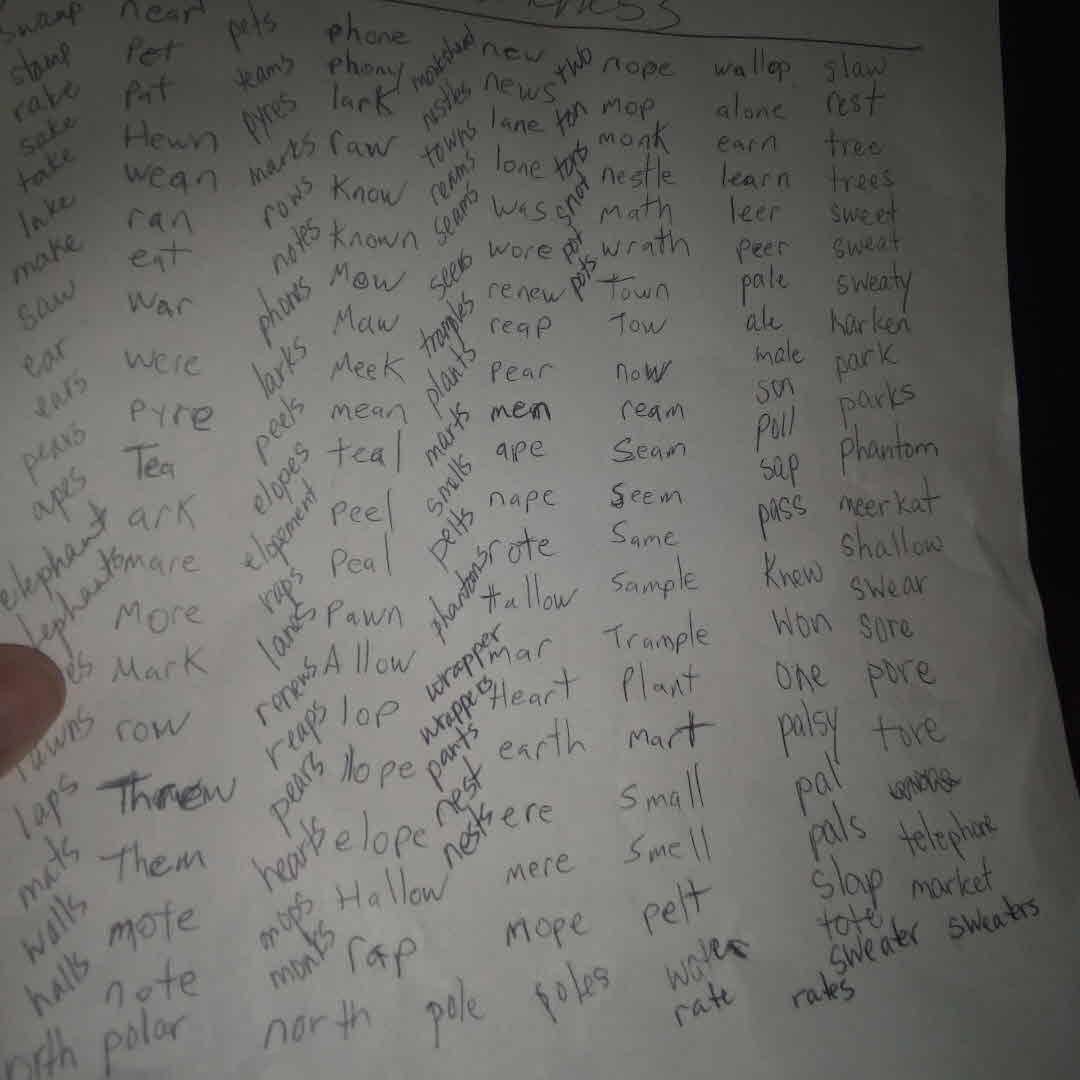 swamp
stamp
rake
sake
take
lake
make
saw
ear
ears
pears
apes
elephant
laps
mats
walls
halls
near
Pet
Pat
Hewn
wean
ran
eat
War
Were
Pyre
Tea
ark
mare
More
Mark
row
Threw
Them
mote
note
polar
pets
teams
pyres
marks
rows
notes
phones
larks
peels
elopes
elopement
raps
lanes
renews
reaps
pears
hearts
mops
monks
north
phone
phony
lark
raw
Know
Known
Mow
Maw
Meek
mean
teal
Peel
Peal
Pawn
Allow
lop
lope
elope
Hallow
rap
pole
nestles
towns
reams
seams
seers
tramples
plants
marts
smells
pelts
phantoms
wrapper
wrappers
pants
nest
nests
new
news
lane
lone
was
wore
renew
reap
pear
men
ape
nape
rote
Hallow
mar
Heart
earth
ere
mere
mope
poles
two
ton
snot
pot
pots
nope
mop
monk
nestle
math
wrath
Town
Tow
now
ream
Seam
Seem
Same
Sample
Trample
Plant
mart
Small
Smell
pelt
water
rate
wallop
alone
earn
learn
leer
peer
pale
ale
male
son
poll
sap
pass
Knew
Won
one
palsy
pal
pals
slap
tote
sweater
rates
slaw
rest
tree
trees
sweet
sweat
sweaty
harken
park
parks
phantom
meerkat
shallow
swear
sore
pore
tore
telephone
market
sweaters